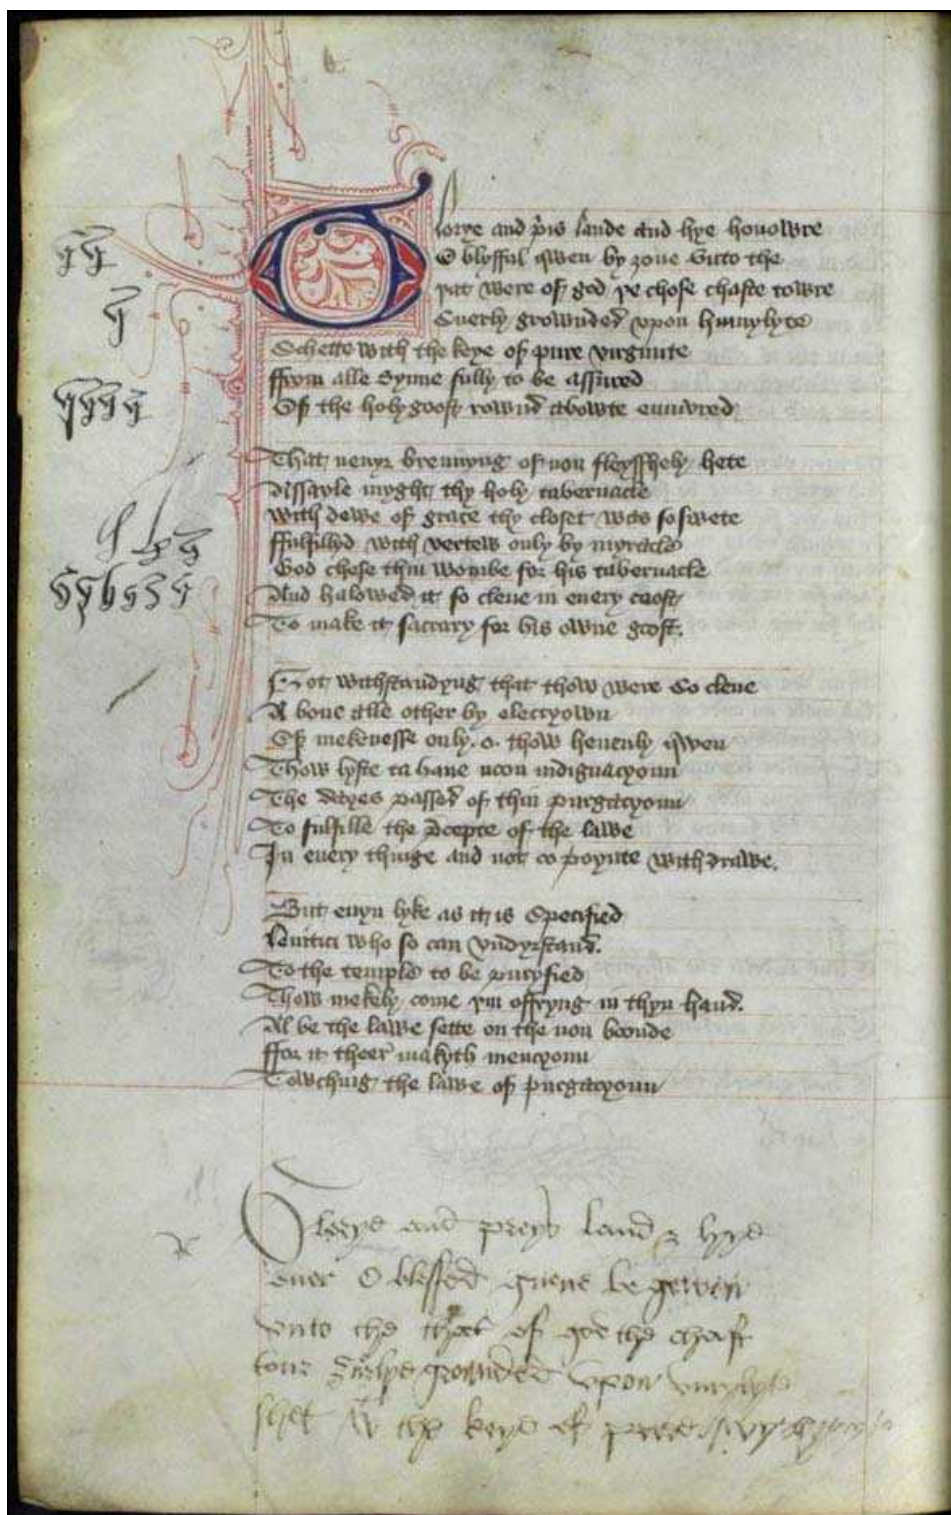 Glorye and pris laude and hye honowre
O blysful qwen by зoue vnto the
þat were of god þe chose chaste towre
Suerly grownded vpon humylyte
Schette with the keye of pure virginite
ffrom alle Synne fully to be assured
Of the holy goost rownd abowte enmured
That neuyr brennyng of non fleysshely hete
Assayle myght thy holy tabernacle
with dewe of grace thy closet was so swete
ffulfillyd with vertew only by myracle
God chese thin wombe for his tabernacle
And halowed it so clene in euery coost
To make it sacrary for his owne goost.
Not withstandyng that thow were So clene
A boue alle other by eleccyown
Of mekenesse only .o. thow heuenly qwen
Thow lyste to haue noon indignacyoun
The dayes passed of thin purgacyoun
To fulfille the precepte of the lawe
In euery thinge and not oo poynte withdrawe.
But euyn lyke as it is Specified
leuitici who so can vndyrstand.
To the temple to be puryfied
Thow mekely come þin offryng in thyn hand.
Al be the lawe sette on the non boonde
ffor it theer makyth mencyoun
Towching the lawe of purgacyoun
Gloryd and preys laud & hye
onor O blessed quene be gewen
vnto the that of god the chast
tour surlye grownded vpon vmylyte
shet w the keye of pure virgynyte